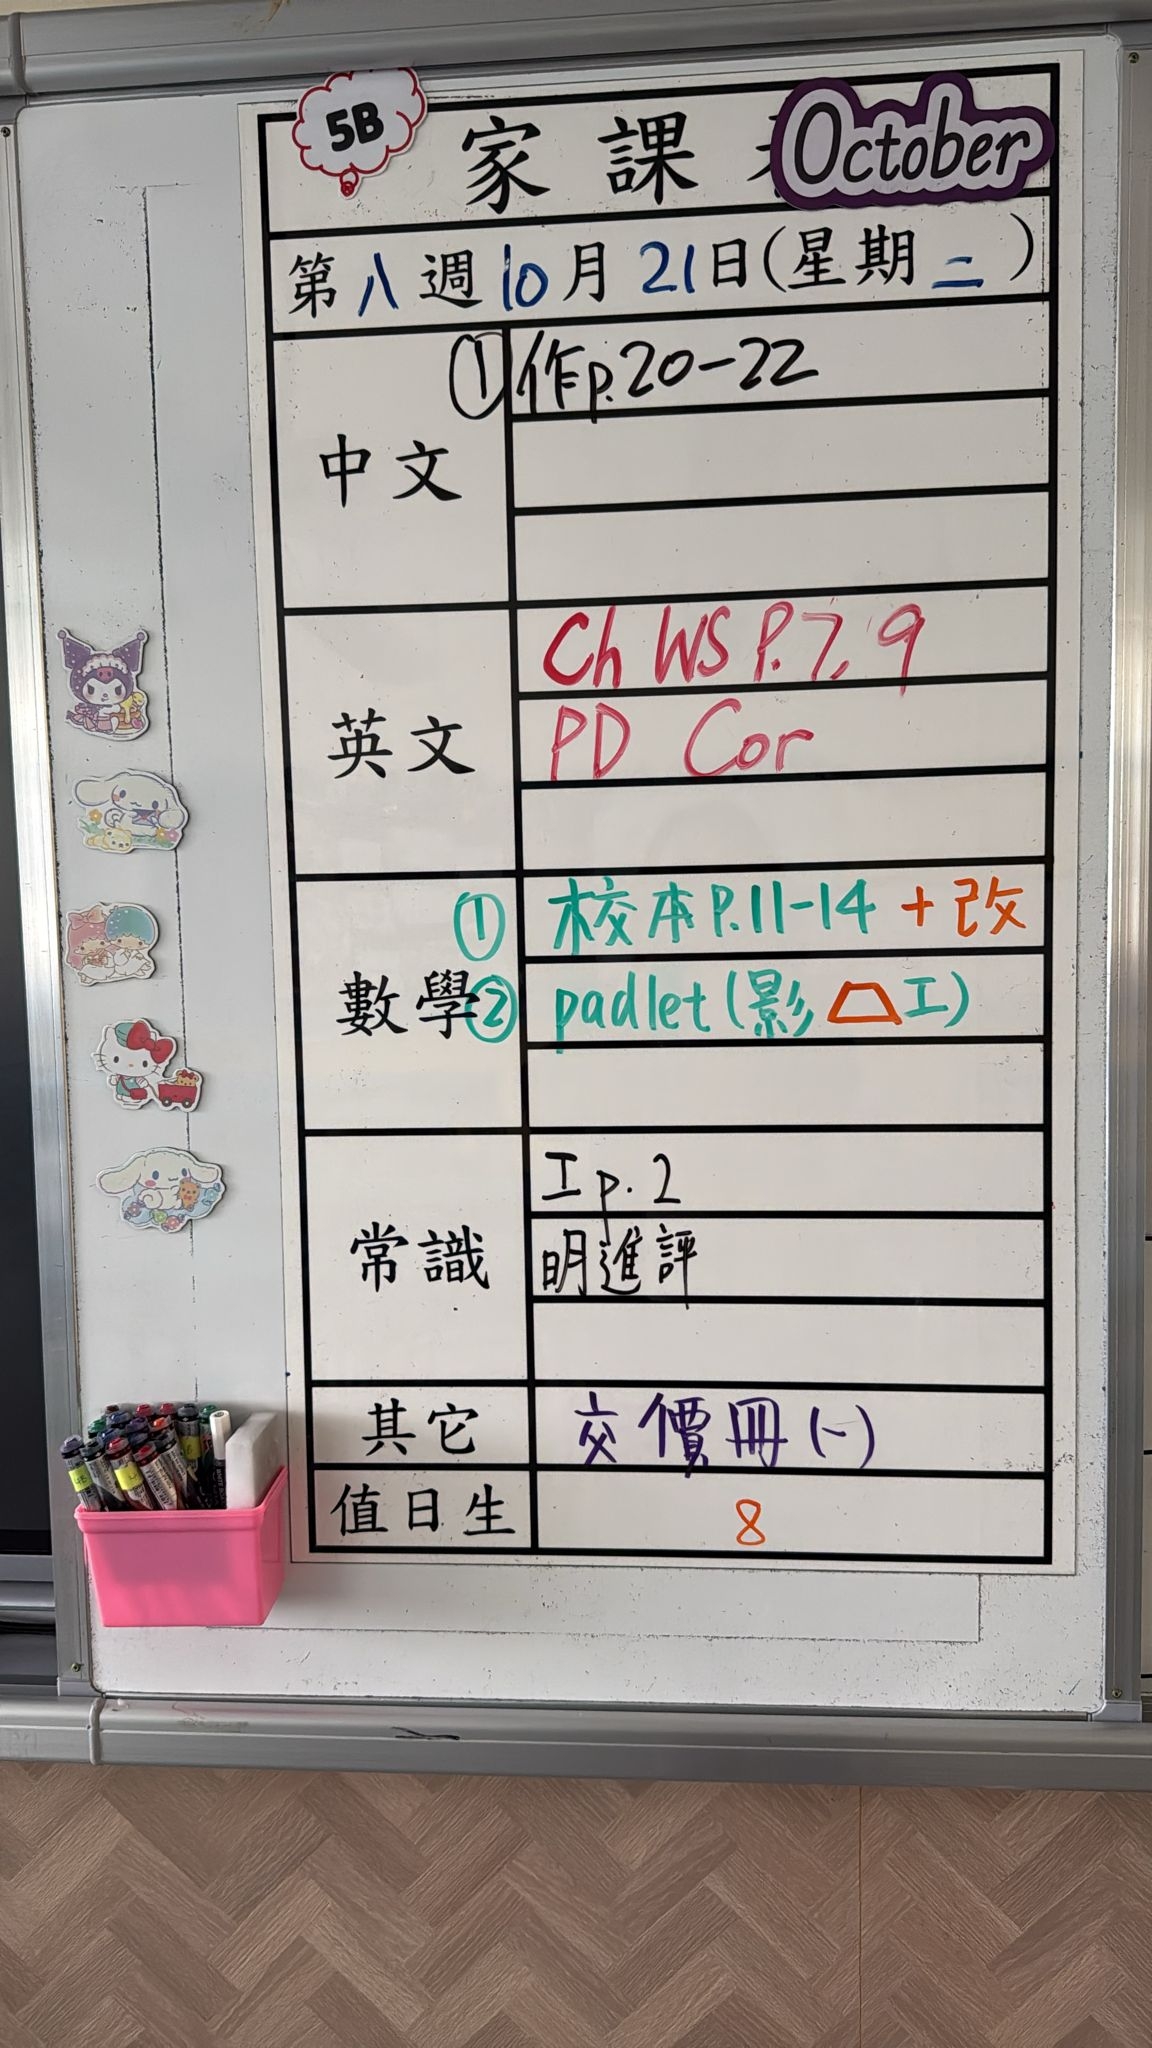 5B
家課
October
第八週10月21日(星期二)
中文
①作p.20-22
英文
Ch WS P.7, 9
PD Cor
數學
①校本P.11-14+改
②padlet(影工)
常識
工p.2
明進評
其它
交價冊(一)
值日生
8